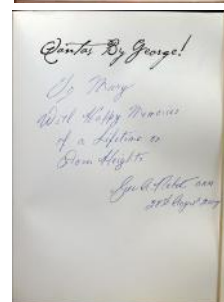 Qantas By George!
To Mary
With Happy Memories
of a Lifetime on
Heights
Geo A.
28th August